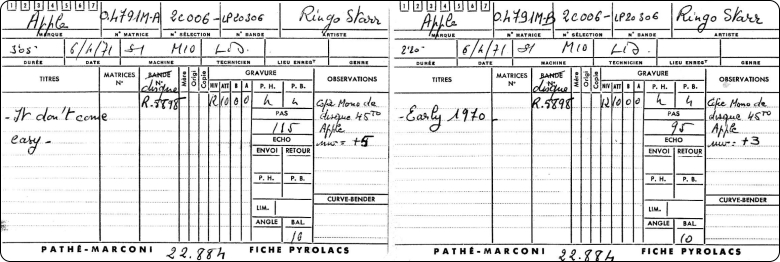 1 2 3 4 5 6 7
Apple
0.4791M-A
2C006-
LP20306
Ringo Starr
MARQUE
N° MATRICE
N° SÉLECTION
N° BANDE
ARTISTE
3'05"
6/4/71
S1
M10
DURÉE
DATE
MACHINE
TECHNICIEN
LIEU ENREGT
GENRE
TITRES
MATRICES N°
BANDE N°
disque
Mère
Origi
Copie
GRAVURE
NIV ATT B A
P. H. P. B.
OBSERVATIONS
R.5898
R 10 0 0
h h
Copie Mono de
disque 45TO
Apple
niv = +5
- It don't come
easy -
PAS
115
ECHO
ENVOI RETOUR
P. H. P. B.
LIM.
CURVE-BENDER
ANGLE BAL.
10
PATHÉ-MARCONI
22.884
FICHE PYROLACS
1 2 3 4 5 6 7
Apple
0.4791M-B
2C006-
LP20306
Ringo Starr
MARQUE
N° MATRICE
N° SÉLECTION
N° BANDE
ARTISTE
2'20"
6/4/71
S1
M10
DURÉE
DATE
MACHINE
TECHNICIEN
LIEU ENREGT
GENRE
TITRES
MATRICES N°
BANDE N°
disque
Mère
Origi
Copie
GRAVURE
NIV ATT B A
P. H. P. B.
OBSERVATIONS
R.5898
R 10 0 0
h h
Copie Mono de
disque 45TO
Apple
niv = +3
- Early 1970 -
PAS
95
ECHO
ENVOI RETOUR
P. H. P. B.
LIM.
CURVE-BENDER
ANGLE BAL.
10
PATHÉ-MARCONI
22.884
FICHE PYROLACS